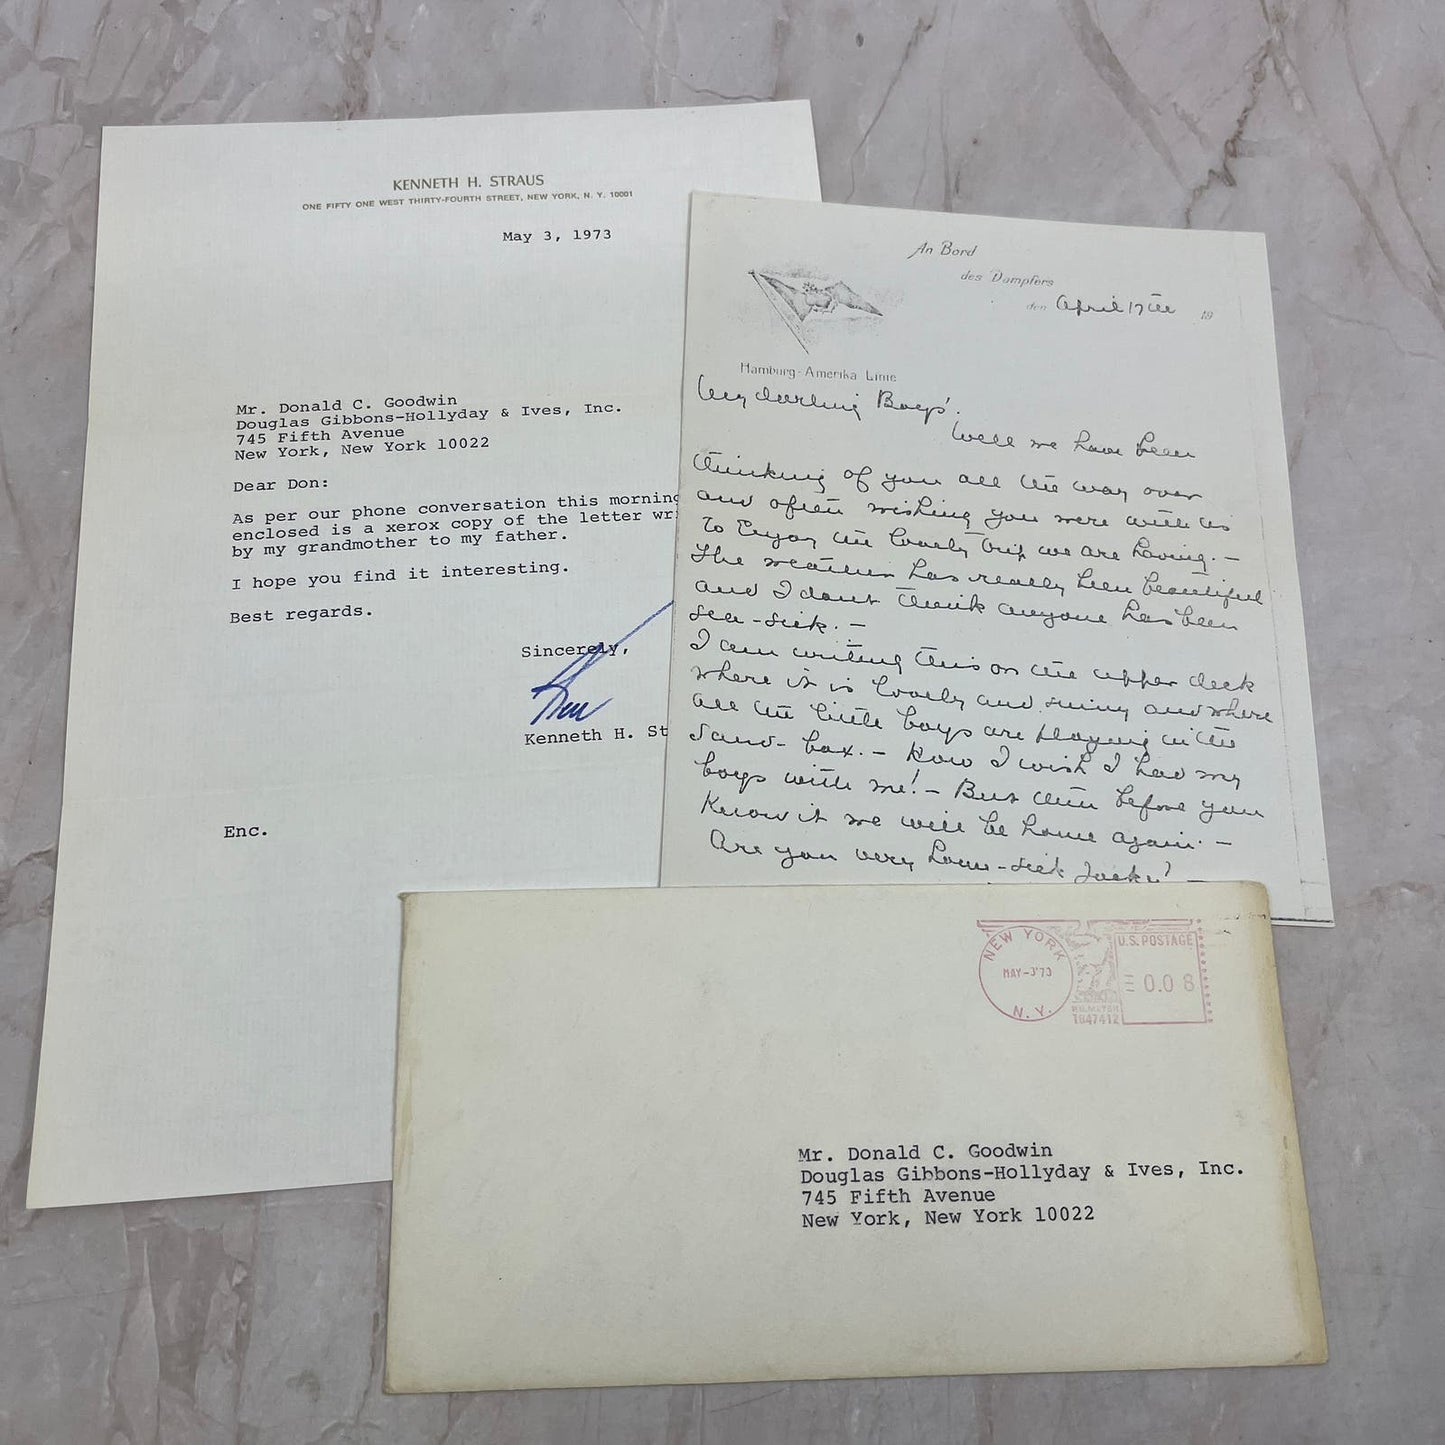 KENNETH H. STRAUS
ONE FIFTY ONE WEST THIRTY-FOURTH STREET, NEW YORK, N. Y. 10001
May 3, 1973
Mr. Donald C. Goodwin
Douglas Gibbons-Hollyday & Ives, Inc.
745 Fifth Avenue
New York, New York 10022
Dear Don:
As per our phone conversation this morning
enclosed is a xerox copy of the letter wr
by my grandmother to my father.
I hope you find it interesting.
Best regards.
Sincerely,
Ken
Kenneth H. St
Enc.
An Bord
des Dampfers
den April 17th 19
Hamburg-Amerika Linie
My darling Boys'.
Well we have been
thinking of you all the way over
and often wishing you were with us
to Enjoy the lovely trip we are having. -
The weather has really been beautiful
and I dont think anyone has been
sea-sick. -
I am writing this on the upper deck
where it is lovely and sunny and where
all the little boys are playing in the
sand-box. - How I wish I had my
boys with me! - But then before you
know it we will be home again. -
Are you very home-sick Jacky? -
NEW YORK
MAY-3'73
N.Y.
U.S. POSTAGE
0.08
P.B. METER
1847412
Mr. Donald C. Goodwin
Douglas Gibbons-Hollyday & Ives, Inc.
745 Fifth Avenue
New York, New York 10022